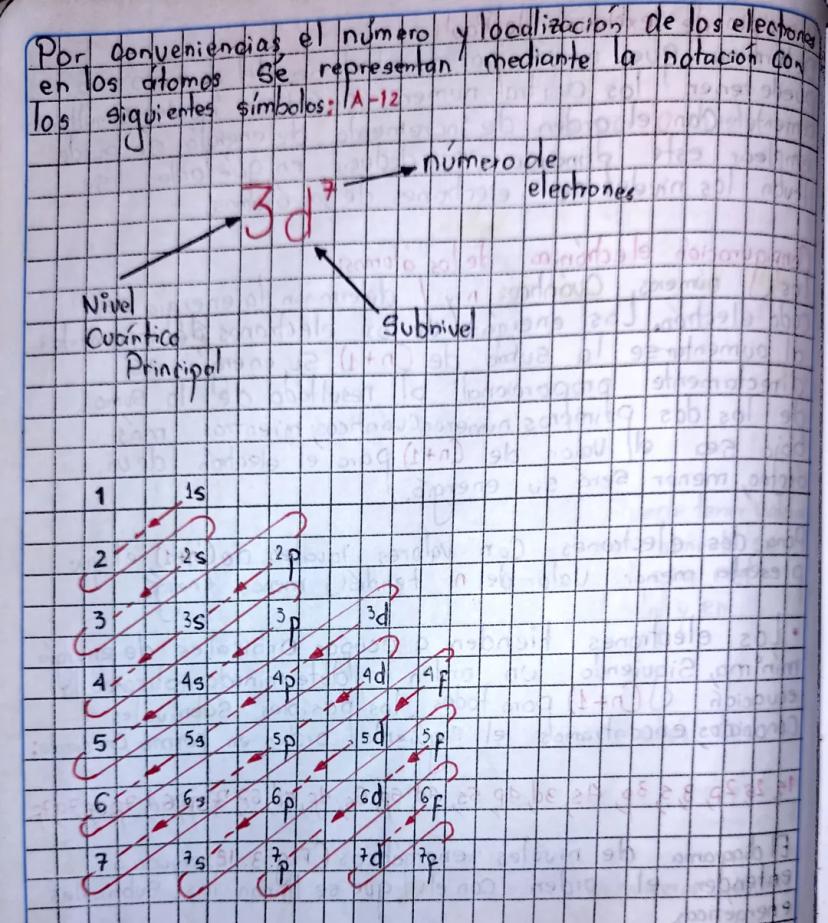 Por conveniencias, el número y localización de los electrones
en los atomos se representan mediante la notación con
los siguientes símbolos: A-12
3d⁷
número de
electrones
Nivel
Cuántico
Principal
Subnivel
1 1s
2 2s 2p
3 3s 3p 3d
4 4s 4p 4d 4f
5 5s 5p 5d 5f
6 6s 6p 6d 6f
7 7s 7p 7d 7f